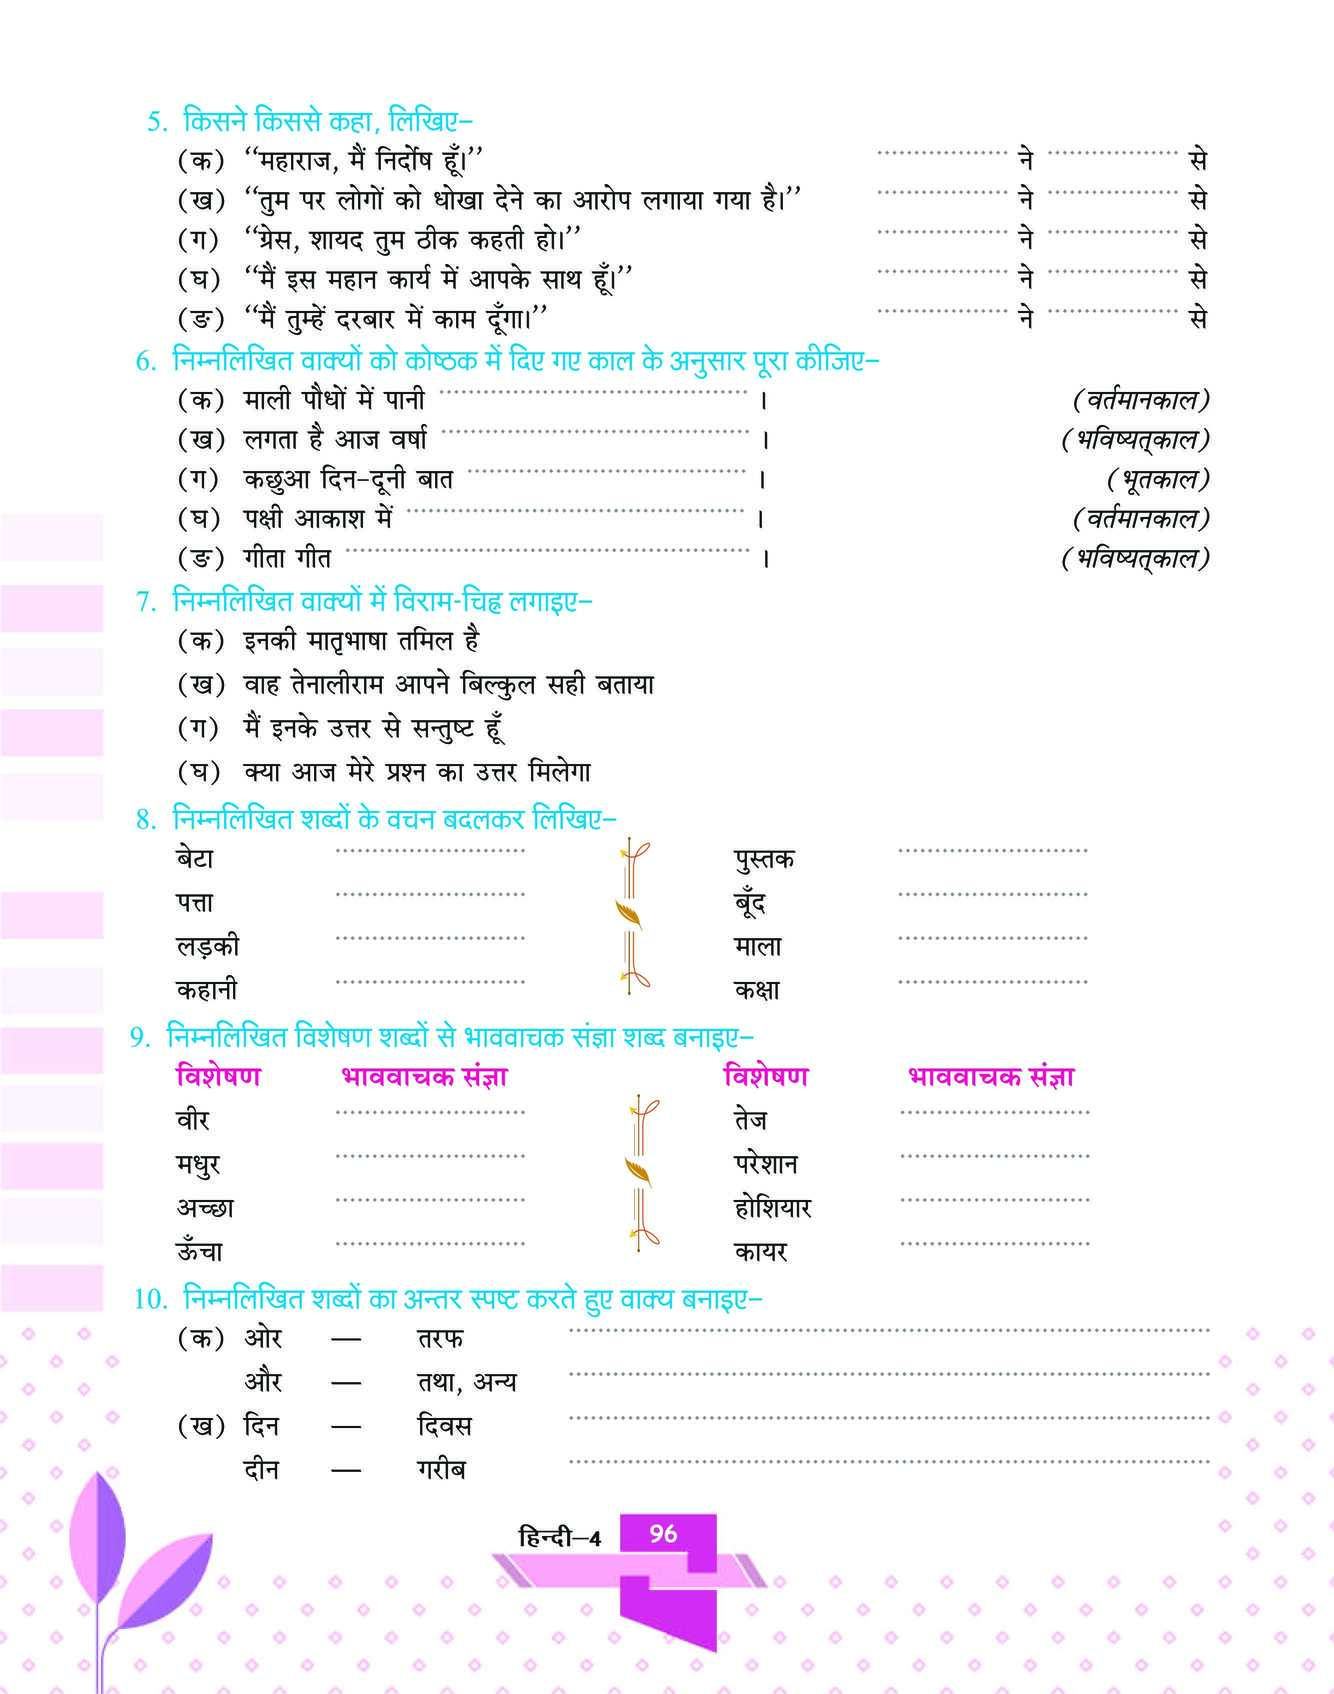 5. किसने किससे कहा, लिखिए–
(क) ‘‘महाराज, मैं निर्दोष हूँ।’’ .................. ने .................. से
(ख) ‘‘तुम पर लोगों को धोखा देने का आरोप लगाया गया है।’’ .................. ने .................. से
(ग) ‘‘ग्रेस, शायद तुम ठीक कहती हो।’’ .................. ने .................. से
(घ) ‘‘मैं इस महान कार्य में आपके साथ हूँ।’’ .................. ने .................. से
(ङ) ‘‘मैं तुम्हें दरबार में काम दूँगा।’’ .................. ने .................. से
6. निम्नलिखित वाक्यों को कोष्ठक में दिए गए काल के अनुसार पूरा कीजिए–
(क) माली पौधों में पानी .................. । (वर्तमानकाल)
(ख) लगता है आज वर्षा .................. । (भविष्यत्काल)
(ग) कछुआ दिन-दूनी बात .................. । (भूतकाल)
(घ) पक्षी आकाश में .................. । (वर्तमानकाल)
(ङ) गीता गीत .................. । (भविष्यत्काल)
7. निम्नलिखित वाक्यों में विराम-चिह्न लगाइए–
(क) इनकी मातृभाषा तमिल है
(ख) वाह तेनालीराम आपने बिल्कुल सही बताया
(ग) मैं इनके उत्तर से सन्तुष्ट हूँ
(घ) क्या आज मेरे प्रश्न का उत्तर मिलेगा
8. निम्नलिखित शब्दों के वचन बदलकर लिखिए–
बेटा .................. पुस्तक ..................
पत्ता .................. बूँद ..................
लड़की .................. माला ..................
कहानी .................. कक्षा ..................
9. निम्नलिखित विशेषण शब्दों से भाववाचक संज्ञा शब्द बनाइए–
विशेषण भाववाचक संज्ञा विशेषण भाववाचक संज्ञा
वीर .................. तेज ..................
मधुर .................. परेशान ..................
अच्छा .................. होशियार ..................
ऊँचा .................. कायर ..................
10. निम्नलिखित शब्दों का अन्तर स्पष्ट करते हुए वाक्य बनाइए–
(क) ओर — तरफ ..................
और — तथा, अन्य ..................
(ख) दिन — दिवस ..................
दीन — गरीब ..................
हिन्दी–4 96